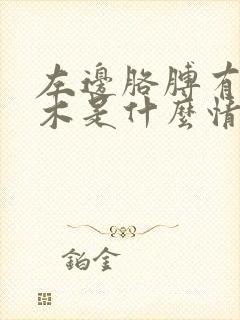 左邊胳膊有
木是什麼情
鉑金